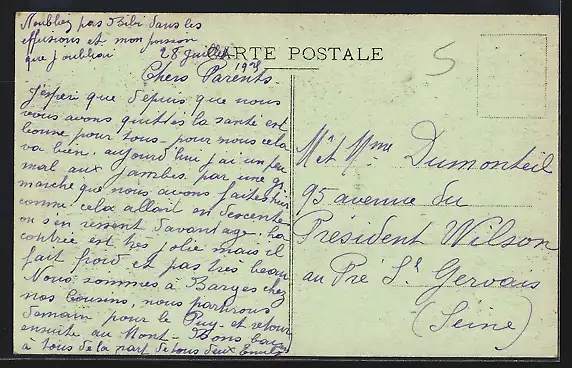 N'oubliez pas Bibi dans les
effusions et mon poisson
que j'oubliai
28 Juillet 1928
CARTE POSTALE
5
Chers Parents
J'espère que depuis que nous
vous avons quittés la santé est
bonne pour tous - pour nous cela
va bien. aujourd'hui j'ai un peu
mal aux jambes par une
marche que nous avons faites hier
comme cela allait en descente
on s'en ressent davantage. La
contrée est très jolie mais il
fait froid et pas très beau
Nous sommes à Barges chez
nos Cousins, nous partirons
demain pour le Puy - et retour
ensuite au Mont - Bons baisers
à tous de la part de tous deux
Mr et Mme Dumonteil
95 avenue du
Président Wilson
au Pré St Gervais
(Seine)